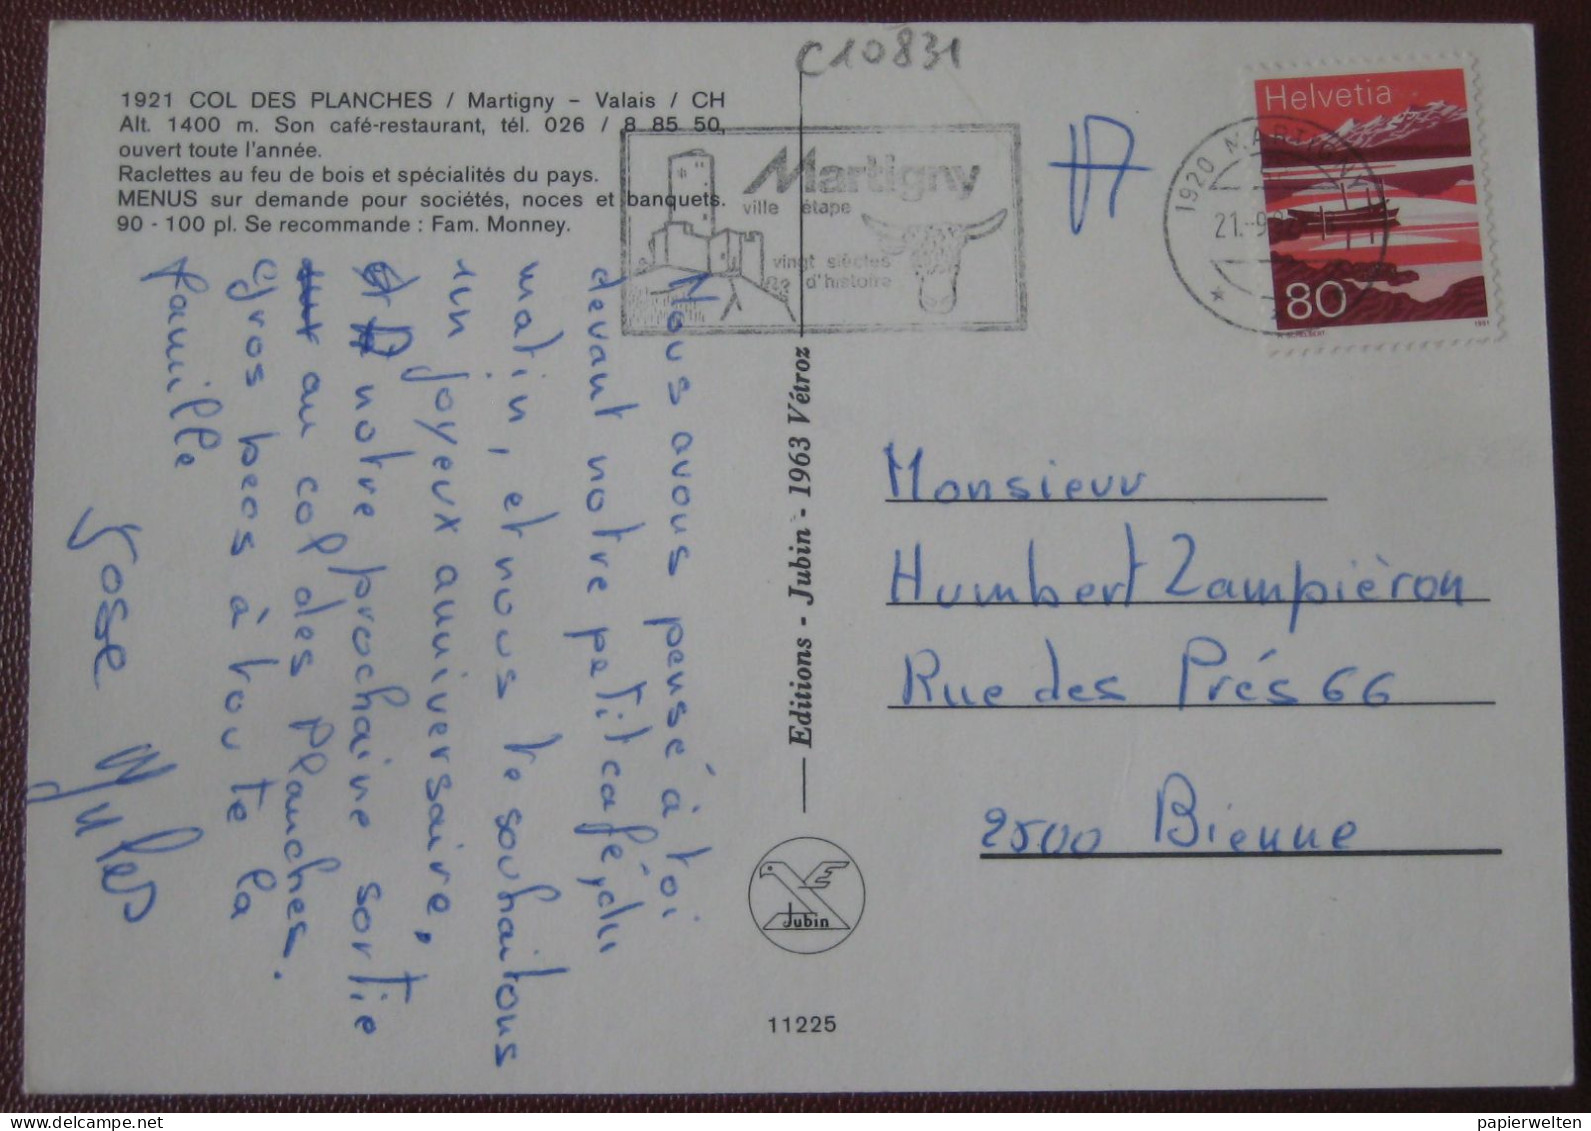 C10831
1921 COL DES PLANCHES / Martigny – Valais / CH
Alt. 1400 m. Son café-restaurant, tél. 026 / 8 85 50,
ouvert toute l'année.
Raclettes au feu de bois et spécialités du pays.
MENUS sur demande pour sociétés, noces et banquets.
90 - 100 pl. Se recommande : Fam. Monney.
Martigny
ville étape
vingt siècles
d'histoire
1920 MARTIGNY
21.-9.
Helvetia
80
1991
Nous avons pensé à toi
devant notre petit café, du
matin, et nous te souhaitons
un joyeux anniversaire,
notre prochaine sortie
au col des Planches.
Gros becs à toute la
famille
Yose Jules
Editions - Jubin - 1963 Vétroz
Jubin
11225
Monsieur
Humbert Zampiéron
Rue des Prés 66
2500 Bienne
papierwelten